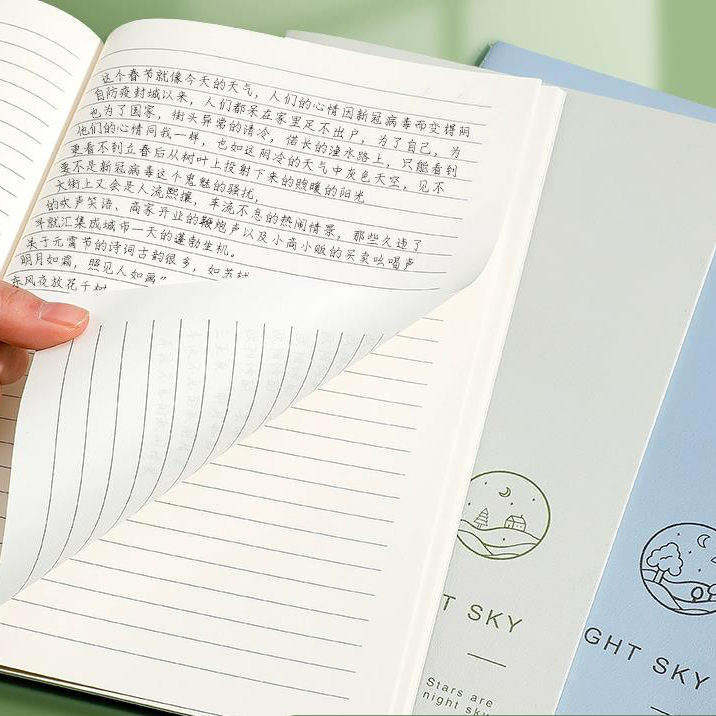 这个春节就像今天的天气，人们的心情因新冠病毒而变得阴
自防疫封城以来，人们都呆在家里足不出户，为了自己，为
也为了国家，街头异常的清冷，偌长的潼水路上，只能看到
他们的心情同我一样，也如这阴冷的天气中灰色天坠，见不
更看不到立春后从树叶上投射下来的煦暖的阳光
要不是新冠病毒这个鬼魅的骚扰，
大街上又会是人流熙攘，车流不息的热闹情景，那些久违了
的欢声笑语、商家开业的鞭炮声以及小商小贩的买卖吆喝声
就汇集成城市一天的蓬勃生机。
关于元宵节的诗词古韵很多，如苏轼
明月如霜，照见人如画”
东风夜放花千树
T SKY
Stars are
night sky
GHT SKY